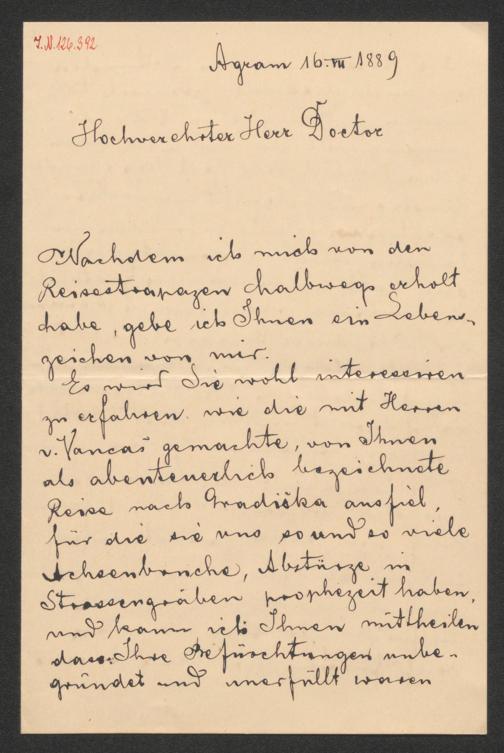 I.N. 126.392
Agram 16. VII 1889
Hochverehrter Herr Doctor
Nachdem ich mich von den
Reisestrapazen halbwegs erholt
habe, gebe ich Ihnen ein Lebens-
zeichen von mir.
Es wird Sie wohl interessiren
zu erfahren wie die mit Herren
v. Vancaš gemachte, von Ihnen
als abenteuerlich bezeichnete
Reise nach Gradiška ausfiel,
für die sie uns so und so viele
Achsenbrüche, Abstürze in
Strassengräben prophezeit haben,
und kann ich Ihnen mittheilen
dass Ihre Befürchtungen unbe-
gründet und unerfüllt waren